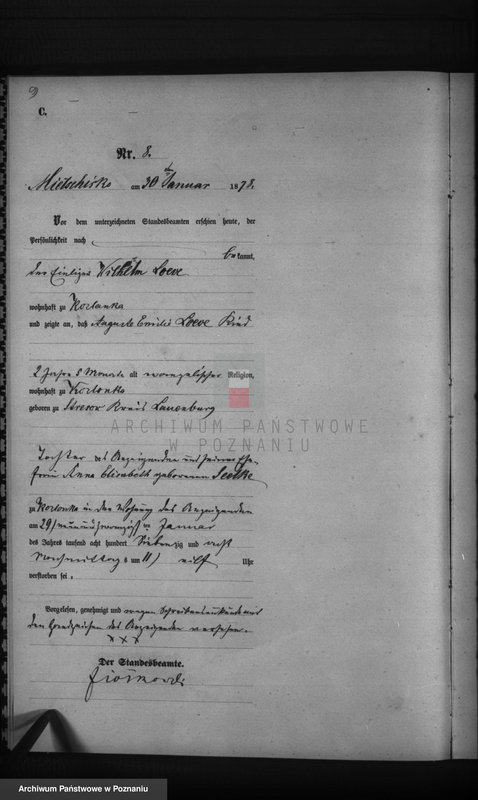 C.
Nr. 8.
Mietschisko am 30ten Januar 1878.
Vor dem unterzeichneten Standesbeamten erschien heute, der
Persönlichkeit nach
bekannt,
der Einlieger Wilhelm Loeve
wohnhaft zu
und zeigte an, daß Auguste Emilie Loeve Kind
2 Jahre 8 Monate alt evangelischer Religion,
wohnhaft zu
geboren zu Stresow Kreis Lauenburg
Tochter des Anzeigenden und seiner Ehe-
frau Anna Elisabeth geborenen
zu in der Wohnung des Anzeigenden
am 29/neunundzwanzigsten Januar
des Jahres tausend acht hundert Siebenzig und acht
Vormittags um 11/ eilf Uhr
verstorben sei.
Vorgelesen, genehmigt und wegen Schreibensunkunde mit
den Handzeichen des Anzeigenden versehen.
x x x
Der Standesbeamte.
ARCHIWUM PAŃSTWOWE
W POZNANIU
Archiwum Państwowe w Poznaniu